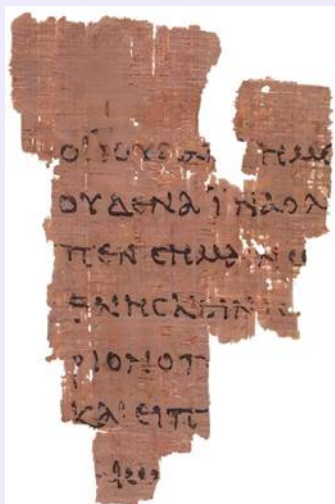 ΟΙ ΙΟΥΔΑΙ ΗΜΙ
ΟΥΔΕΝΑ ΪΝΑ Ο Λ
ΠΕΝ ΣΗΜΑΙΝΩ
ΘΝΗΣΚΕΙΝ Ι
ΡΙΟΝ Ο Π
ΚΑΙ ΕΙΠ